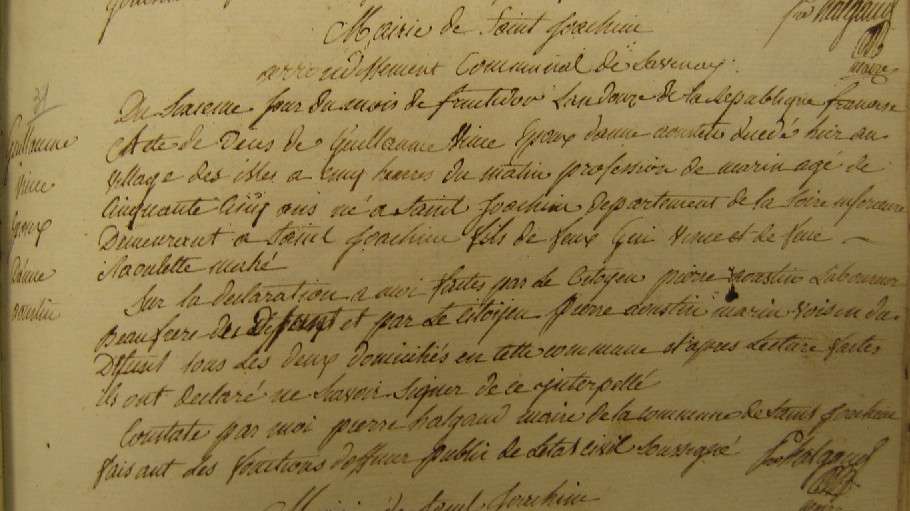 Mairie de Saint Joachim
arrondissement Communal de Savenay.
maire
Du Saseme jour du mois de fructidor Lan douze de la Republique francaise
Acte de deces de Guillaume Vince Epoux danne aoustin decedé hier au
village des isles a cinq heures du matin profession de marin agé de
Cinquante Cinq ans né a Saint Joachim departement de la Loire inferieure
Demeurant a Saint Joachim fils de feux Gui Vince et de feue
Raoulette mahé
Guillaume
Vince
Epoux
Danne
aoustin
Sur la declaration a moi faites par le Citoyen pierre aoustin Laboureur
Beaufrere du Defunt et par Le Citoyen Pierre aoustin marin voisin du
Defunt tous Les deux domiciliés en cette commune et apres Lecture faites
ils ont declaré ne Savoir Signer de ce interpellé
Constate par moi pierre halgand maire de la commune de Saint Joachim
faisant des fonctions dofficier public de Letat civil Soussigné
pre halgand
maire
Mairie de Saint Joachim